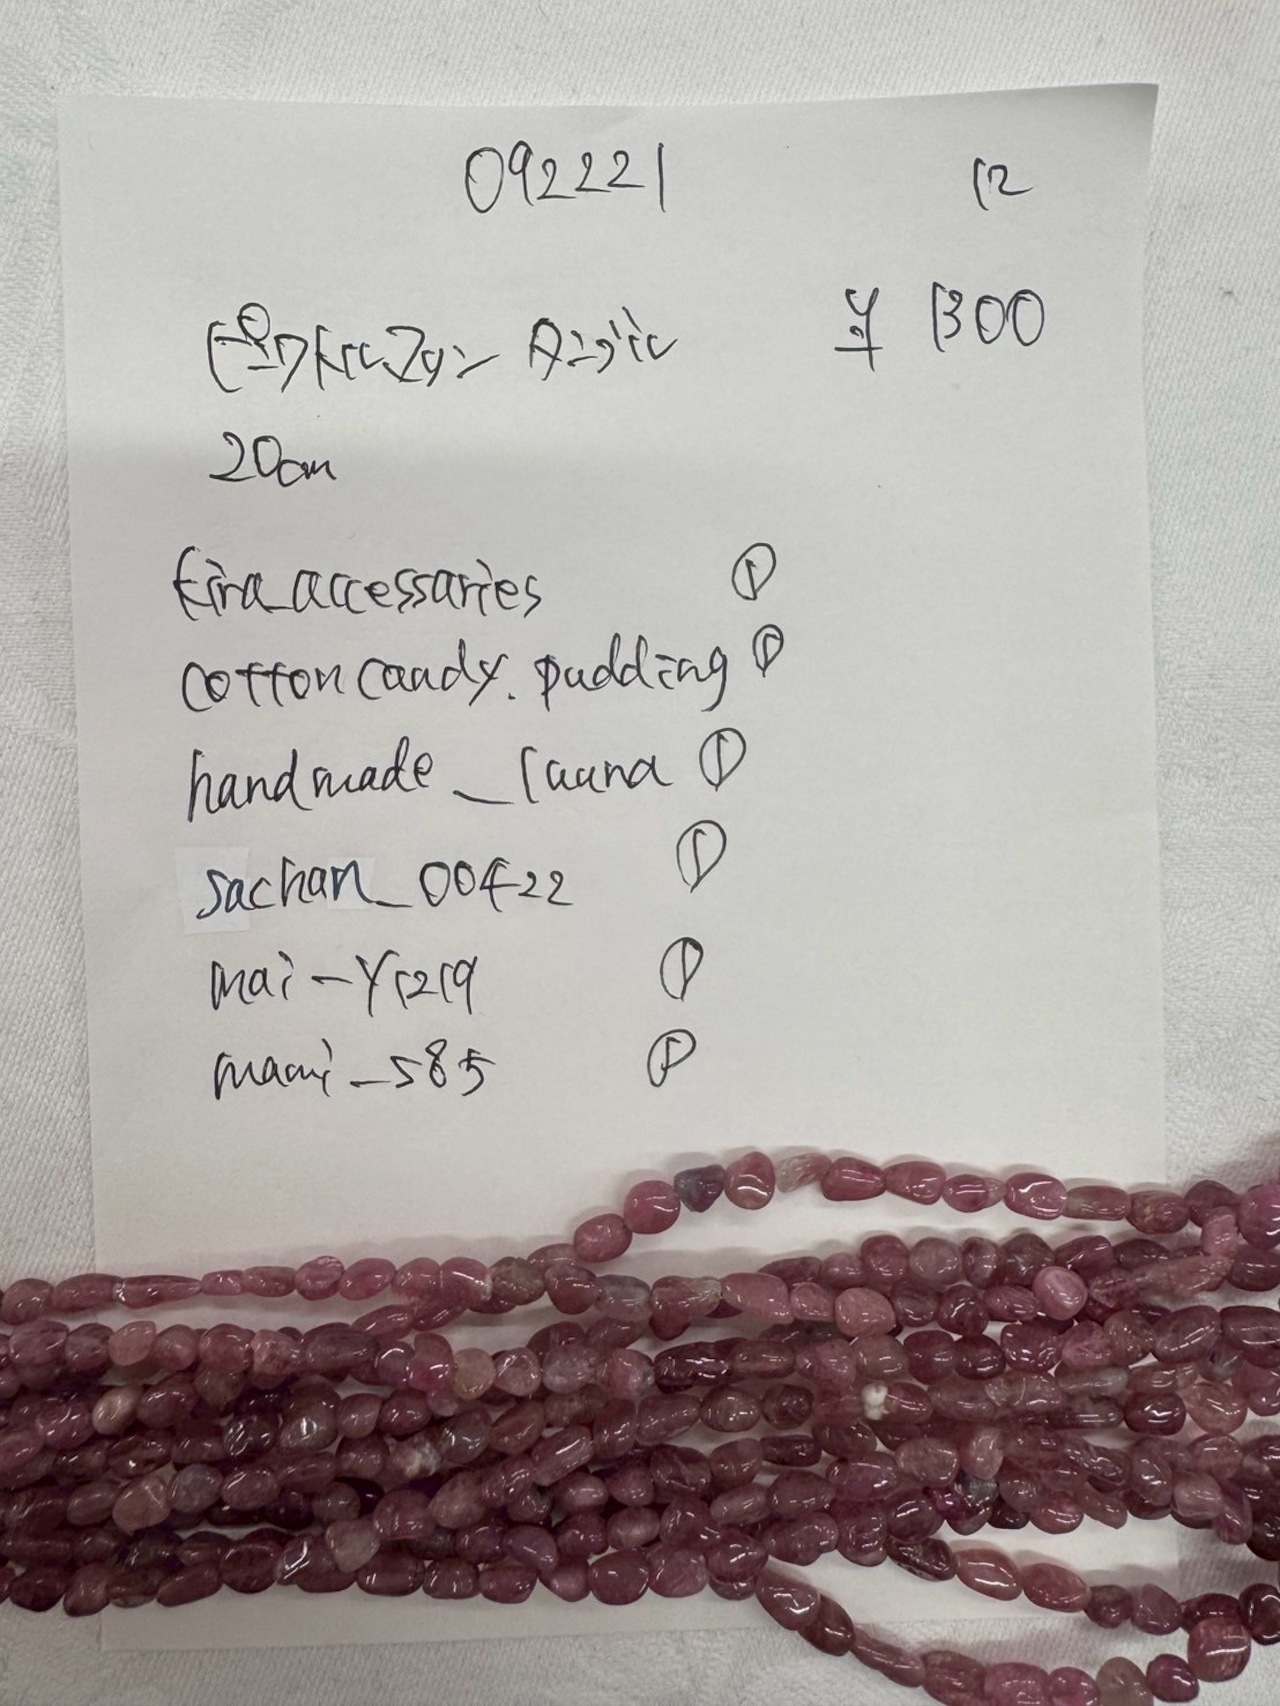 092221 12
¥ 1300
20cm
kira_accessaries ①
cottoncandy.pudding ①
handmade_launa ①
sachan_00422 ①
mai-y1219 ①
mami_585 ①